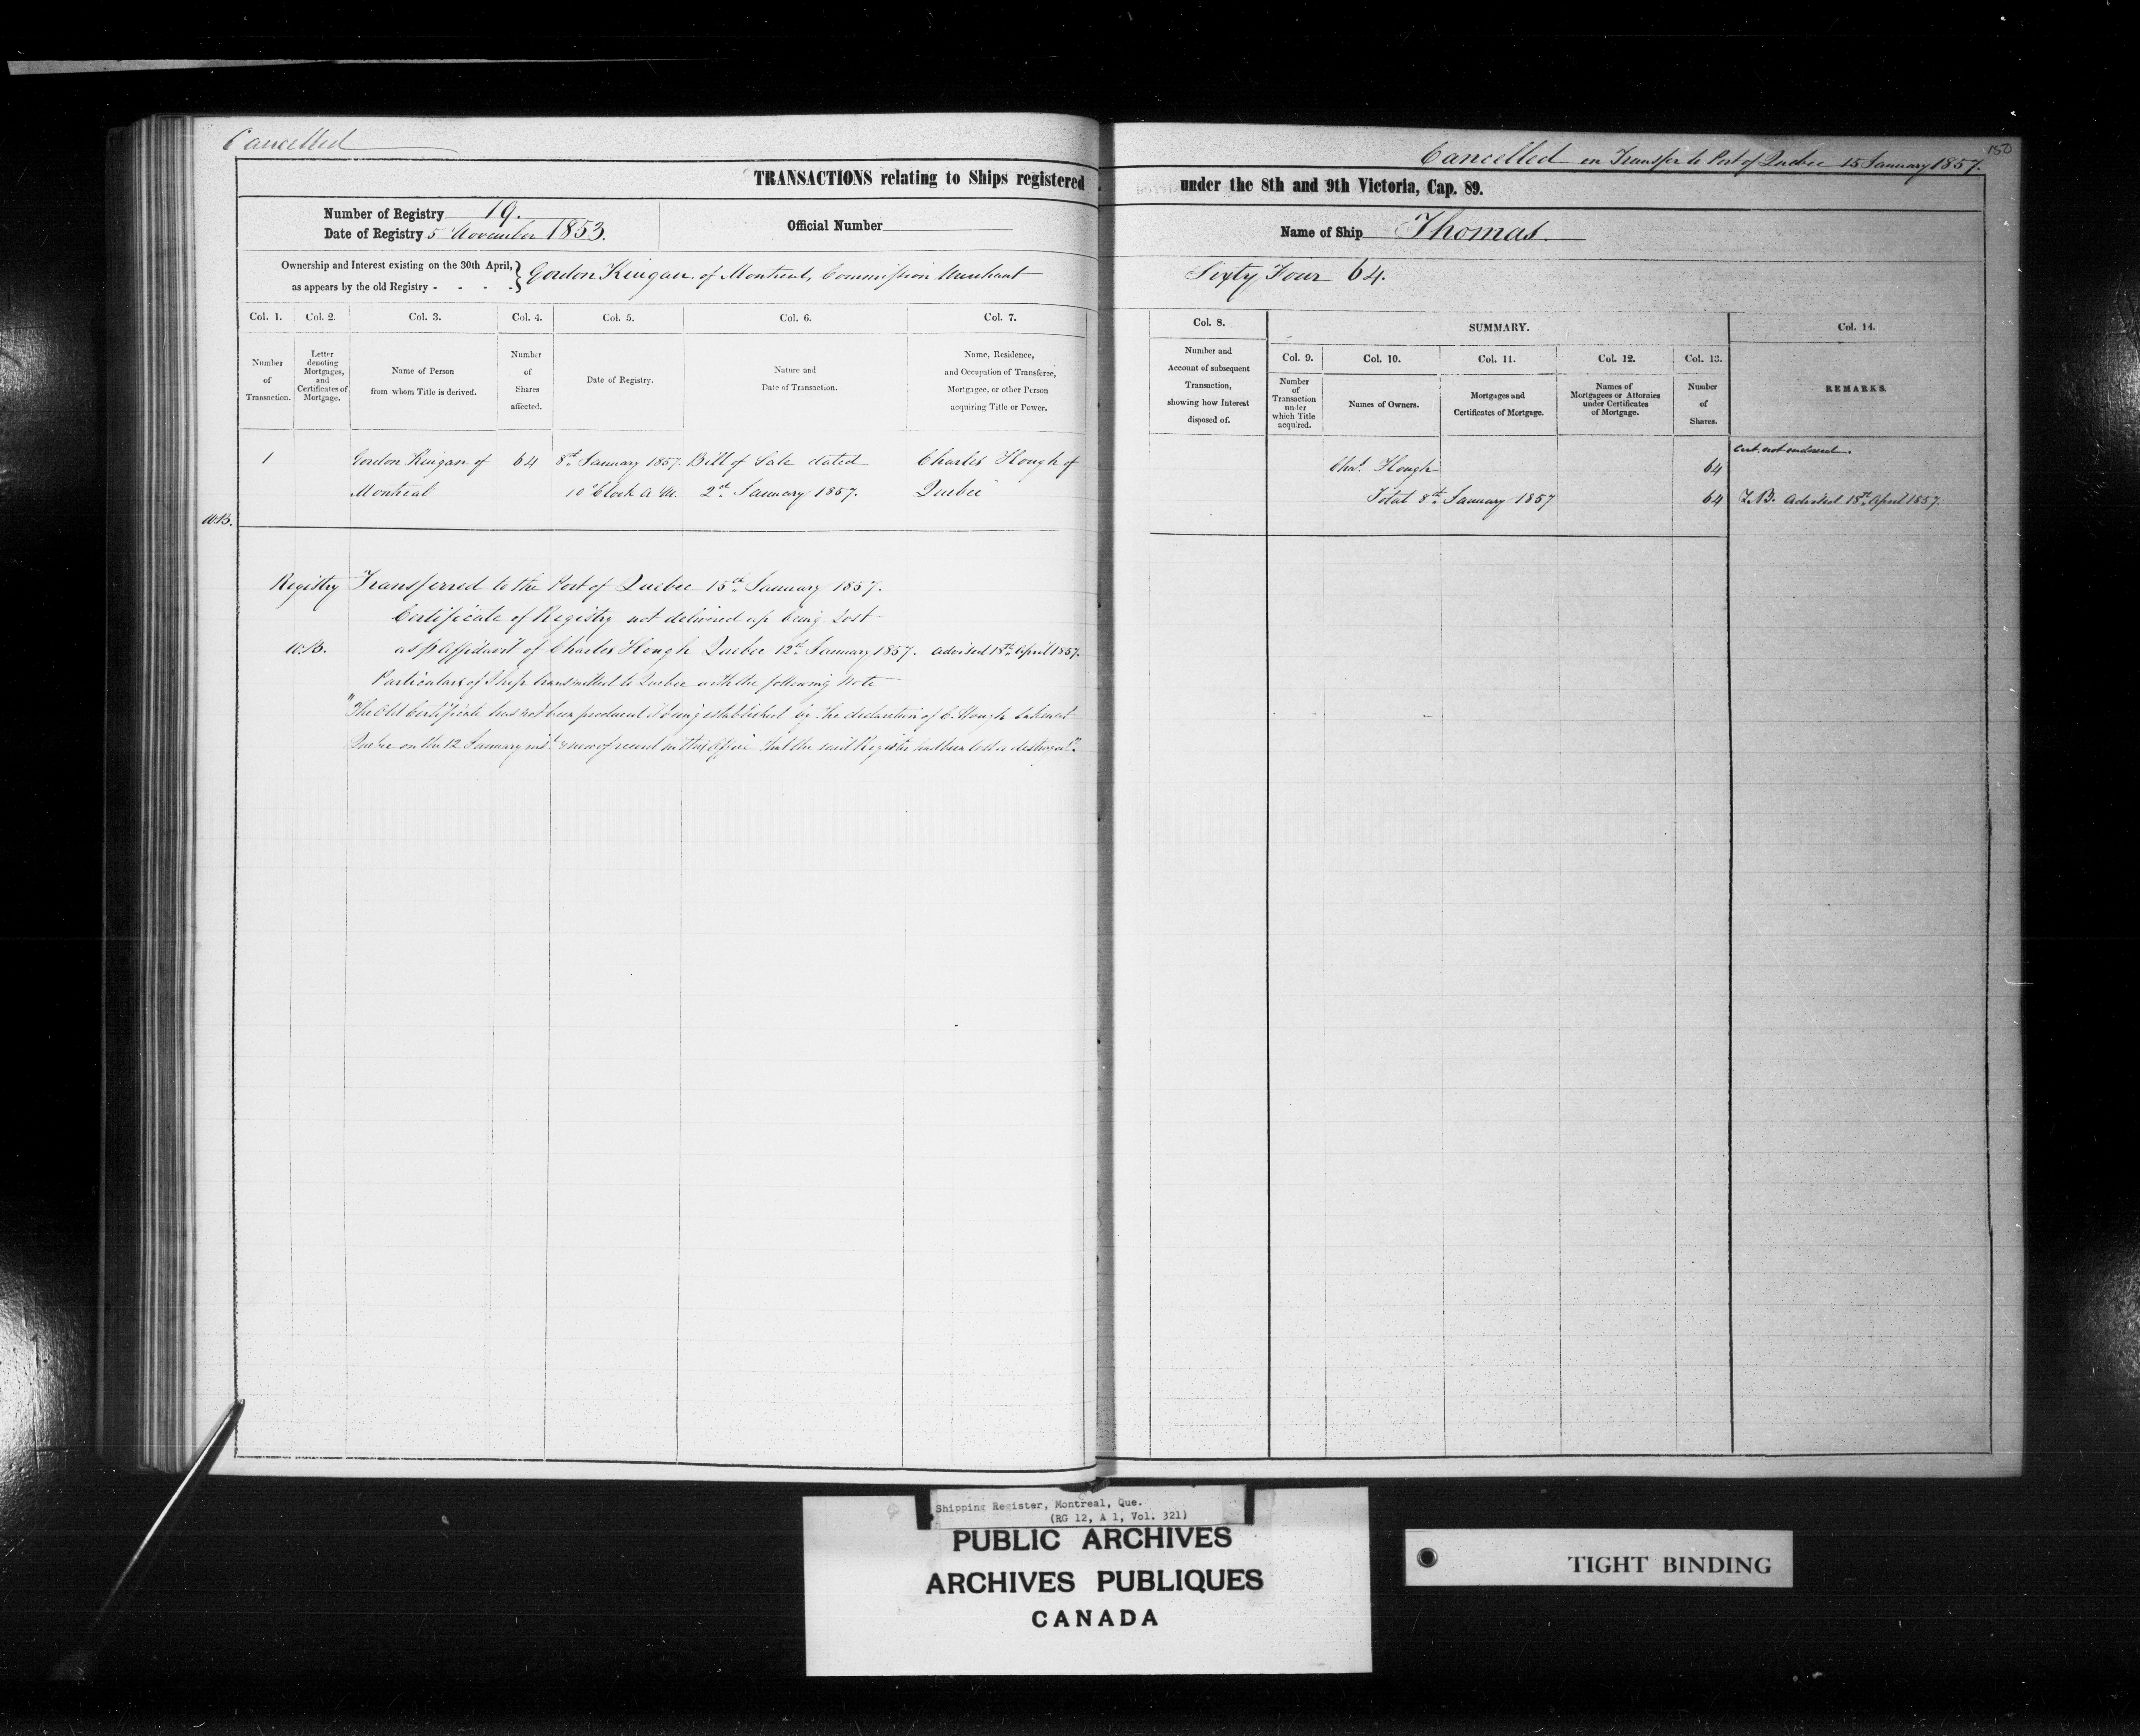 Cancelled
Cancelled on Transfer to Port of Quebec 15 January 1857.
150
TRANSACTIONS relating to Ships registered under the 8th and 9th Victoria, Cap. 89.
Number of Registry 19.
Date of Registry 5 November 1853.
Official Number
Name of Ship Thomas.
Ownership and Interest existing on the 30th April,
as appears by the old Registry - - - -
Gordon Kingan of Montreal, Commission Merchant Sixty Four 64.
Col. 1. Col. 2. Col. 3. Col. 4. Col. 5. Col. 6. Col. 7. Col. 8. SUMMARY. Col. 14.
Col. 9. Col. 10. Col. 11. Col. 12. Col. 13.
Number
of
Transaction.
Letter
denoting
Mortgages,
and
Certificates of
Mortgage.
Name of Person
from whom Title is derived.
Number
of
Shares
affected.
Date of Registry.
Nature and
Date of Transaction.
Name, Residence,
and Occupation of Transferee,
Mortgagee, or other Person
acquiring Title or Power.
Number and
Account of subsequent
Transaction,
showing how Interest
disposed of.
Number
of
Transaction
under
which Title
acquired.
Names of Owners.
Mortgages and
Certificates of Mortgage.
Names of
Mortgagees or Attornies
under Certificates
of Mortgage.
Number
of
Shares.
REMARKS.
Cert. not endorsed.
1 Gordon Kingan of 64 8th January 1857. Bill of Sale dated Charles Hough of Chas. Hough 64
Montreal 10 o'Clock A.M. 2nd January 1857. Quebec Total 8th January 1857 64 Advised 18th April 1857.
W.B.
Registry Transferred to the Port of Quebec 15th January 1857.
Certificate of Registry not delivered up being Lost
W.B. as p Affidavit of Charles Hough Quebec 12th January 1857. advised 18th April 1857.
Particulars of Ship transmitted to Quebec with the following Note
"The Old Certificate has not been produced it being established by the declaration of C. Hough taken at
Quebec on the 12 January inst & now of record in this Office that the said Register had been lost or destroyed".
Shipping Register, Montreal, Que.
(RG 12, A 1, Vol. 321)
PUBLIC ARCHIVES
ARCHIVES PUBLIQUES
CANADA
TIGHT BINDING